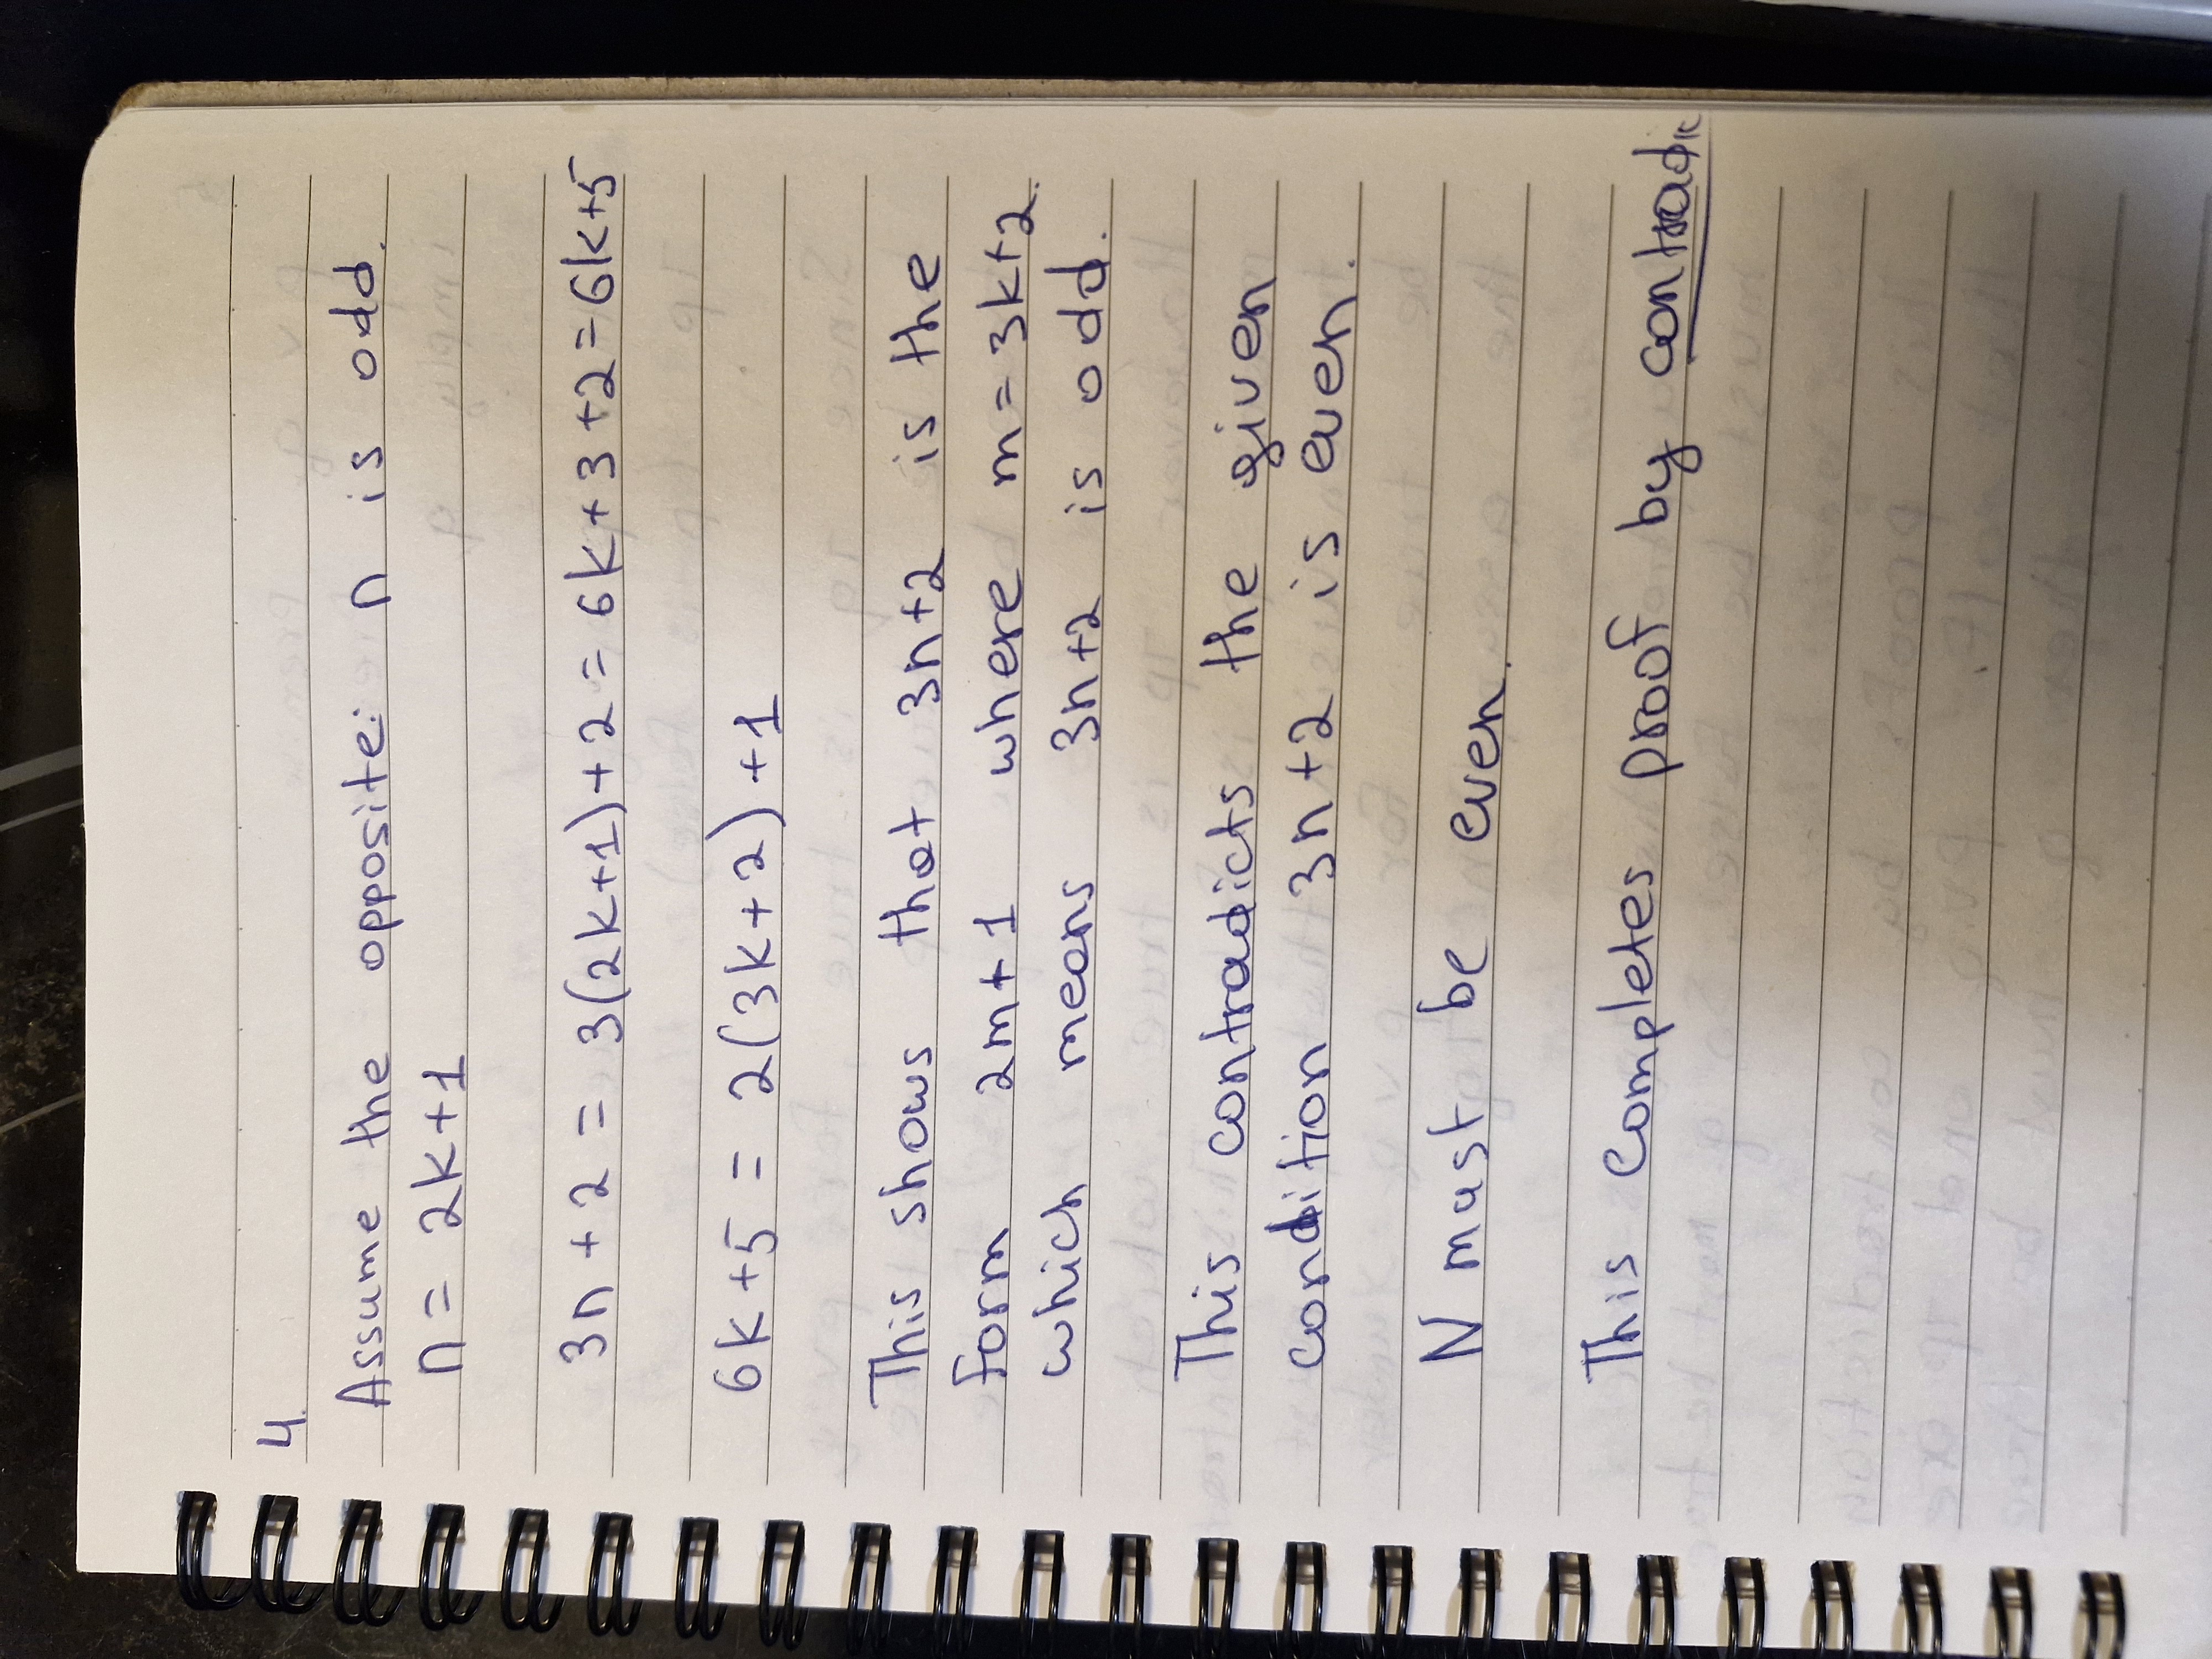 4.
Assume the opposite: n is odd.
n = 2k+1
3n + 2 = 3(2k+1)+2 = 6k+3+2=6k+5
6k+5 = 2(3k+2)+1
This shows that 3n+2 is the
form 2m+1 where m=3k+2.
which means 3n+2 is odd.
This contradicts the given
condition 3n+2 is even.
N must be even.
This completes proof by contradic